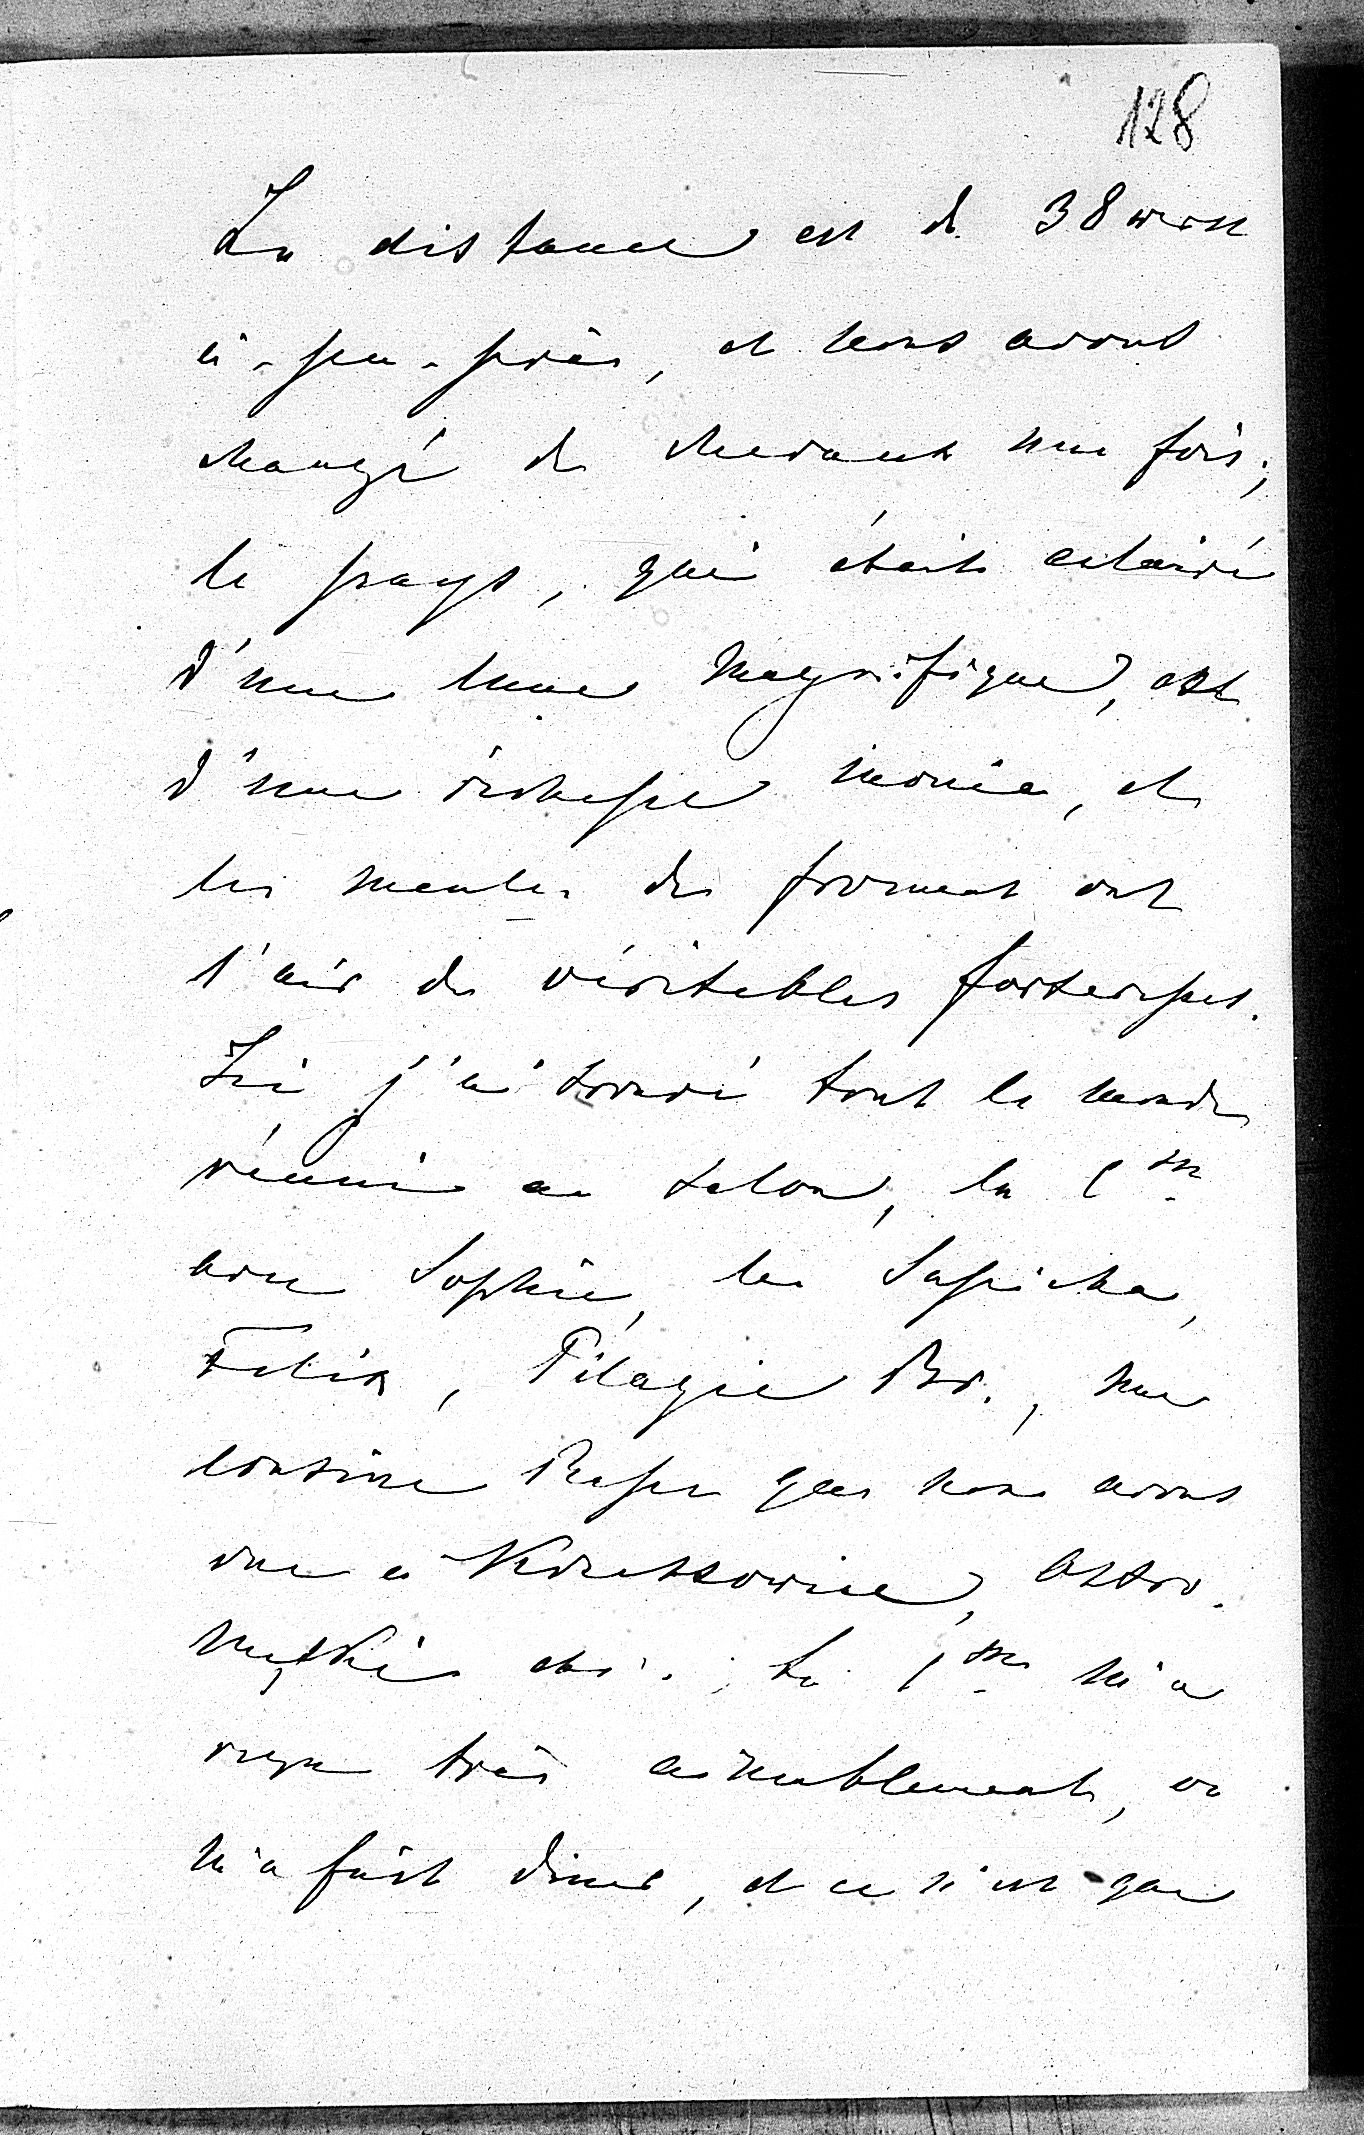 128
La distance est de 38 werst
à-peu-près, et nous avons
changé de chevaux une fois;
le pays, qui était eclairé
d'une lune magnifique, est
d'une richesse inouïe, et
les meules de froment ont
l'air de véritables forteresses.
Ici j'ai trouvé tout le monde
réuni au salon, la Csse
avec Sophie, les Sapieha,
Felix, Pélagie Br., une
cousine Russe que nous avons
vue à Krzeszowice, Ostro-
la Csse m'a
reçu très aimablement, on
m'a fait diner, et ce n'est que